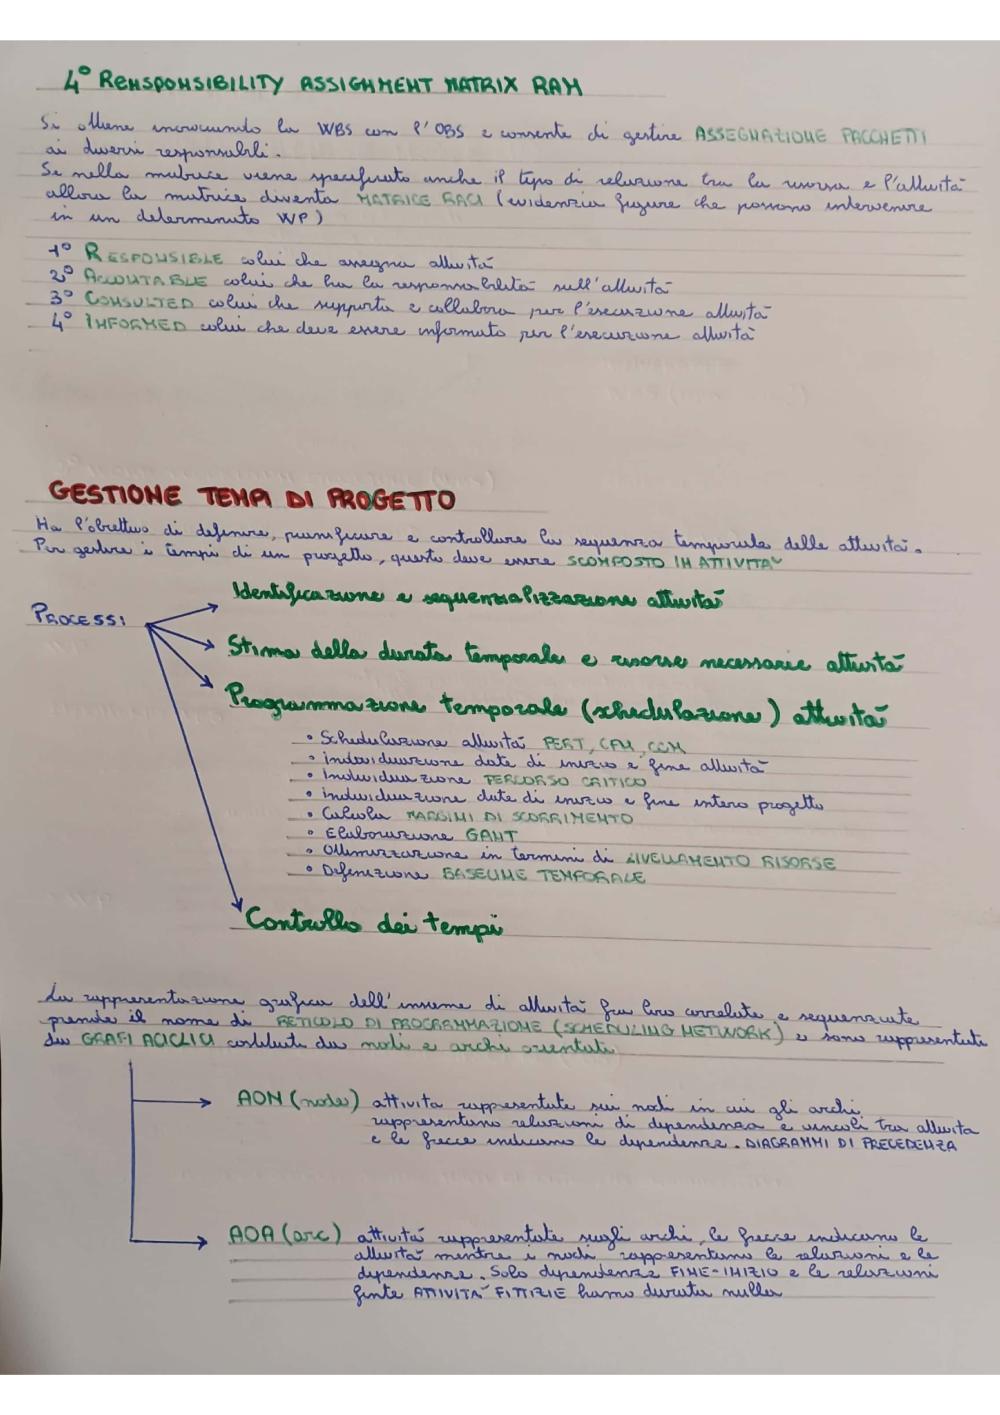 4° REHSPONSIBILITY ASSIGNMENT MATRIX RAM
Si ottiene incrociando la WBS con l'OBS e consente di gestire ASSEGNAZIONE PACCHETTI
ai diversi responsabili.
Se nella matrice viene specificato anche il tipo di relazione tra la risorsa e l'attività
allora la matrice diventa MATRICE RACI (evidenzia figure che possono intervenire
in un determinato WP)
1° RESPONSIBLE colui che assegna attività
2° ACCOUTABLE colui che ha la responsabilità sull'attività
3° CONSULTED colui che supporta e collabora per l'esecuzione attività
4° INFORMED colui che deve essere informato per l'esecuzione attività
GESTIONE TEMPI DI PROGETTO
Ha l'obiettivo di definire, pianificare e controllare la sequenza temporale delle attività.
Per gestire i tempi di un progetto, questo deve essere SCOMPOSTO IN ATTIVITA'
Identificazione e sequenzializzazione attività
PROCESSI
Stima della durata temporale e risorse necessarie attività
Programmazione temporale (schedulazione) attività
• Schedulazione attività PERT, CPM, CCM
• individuazione date di inizio e fine attività
• Individuazione PERCORSO CRITICO
• individuazione date di inizio e fine intero progetto
• Calcolo MARGINI DI SCORRIMENTO
• Elaborazione GANT
• Ottimizzazione in termini di LIVELLAMENTO RISORSE
• Definizione BASELINE TEMPORALE
Controllo dei tempi
La rappresentazione grafica dell'insieme di attività fra loro correlate e sequenziate
prende il nome di RETICOLO DI PROGRAMMAZIONE (SCHEDULING NETWORK) e sono rappresentate
da GRAFI ACICLICI costituiti da nodi e archi orientati
AON (node) attività rappresentate sui nodi in cui gli archi
rappresentano relazioni di dipendenza e vincoli tra attività
e le frecce indicano le dipendenze. DIAGRAMMI DI PRECEDENZA
AOA (arc) attività rappresentate sugli archi, le frecce indicano le
attività mentre i nodi rappresentano le relazioni e le
dipendenze. Solo dipendenze FINE-INIZIO e le relazioni
finte ATTIVITA' FITTIZIE hanno durata nulla